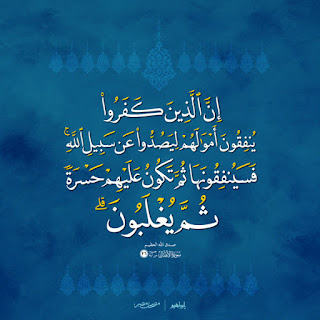 إِنَّ ٱلَّذِينَ كَفَرُوا۟
يُنفِقُونَ أَمْوَٰلَهُمْ لِيَصُدُّوا۟ عَن سَبِيلِ ٱللَّهِ ۚ
فَسَيُنفِقُونَهَا ثُمَّ تَكُونُ عَلَيْهِمْ حَسْرَةً
ثُمَّ يُغْلَبُونَ ۗ
صدق الله العظيم
سورة الأنفال